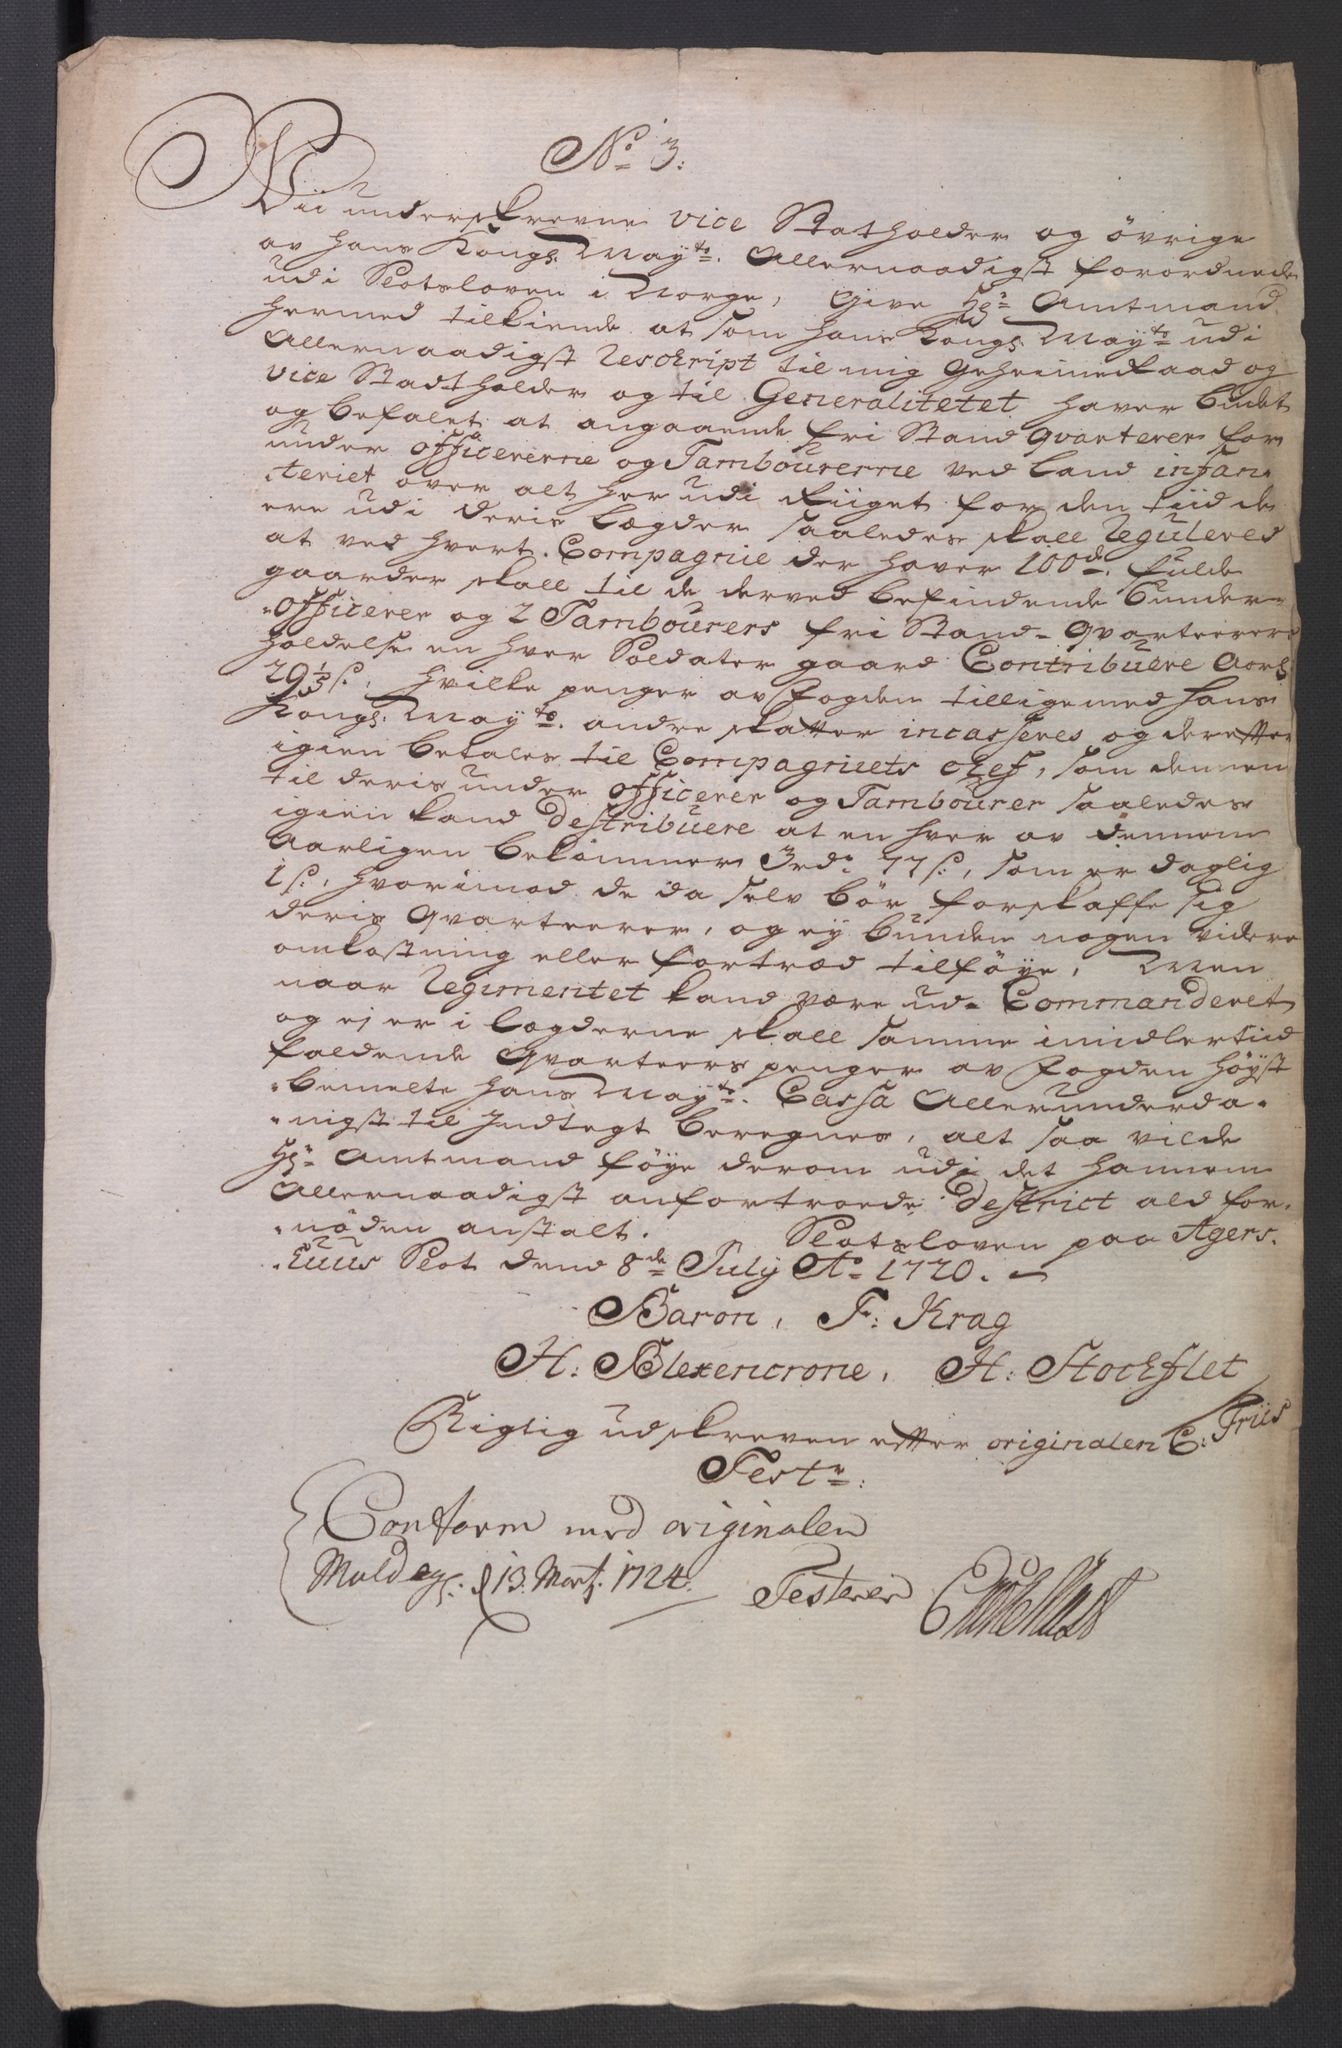 No 3.
Vii underskrevne Vice Statholder og övrige
av Hans Kongl: Mayts. Allernaadigst forordnede
udi Slotsloven i Norge, Give Hr Amtmand
hermed tilkiende at som Hans Kongl: Mayts udi
Allernaadigst Rescript til mig Geheimeraad og
Vice Stadtholder og til Generalitetet haver budet
og befalet at angaaende fri Stand Qvarterer for
under officererne og Tambourerne ved Land infan-
teriet over alt her udi Riiget for den tiid de
ere udi deris Lægder saaledes skall Reguleres
at ved hvert Compagnie der haver 100de fulde
gaarder skall til de derved befindende 6 under-
officerer og 2 Tambourers fri Stand-Qvarteerers
holdelse en hver Soldater gaard Contribuere Aarl:
29 1/3 s:, Hvilke penger av Fogden tilligemed Hans
Kongl: Mayts. andre skatter incasseres og derefter
igien betales til Compagniets Chef, som dennem
til deris under officerer og Tambourer saaledes
igien kand destribuere at en hver av dennem
Aarligen bekommer 3 rdr 77 s:, som er daglig
1 s:, hvorimod de da selv bör forskaffe sig
deris Qvarteerer, og ey bunden nogen videre
omkostning eller fortræd tilföye, Men
naar Regimentet kand være ud-Commanderet
og ej er i Lægderne skall samme imidlertiid
faldende Qvarteers penger av Fogden Höyst
bemelte Hans Mayts. Cassa Allerunderda-
nigst til Indtegt beregnes, alt saa vilde
Hr Amtmand föye derom udi det hannem
Allernaadigst anfortroede destrict ald for-
nöden anstalt. Slotsloven paa Agers-
huus Slot dend 8de July Ao 1720.
Baron, F: Krag
H: Blexencrone, H: Stockflet
Rigtig udskreven efter originalen C: Friis
Testr:
Conform med originalen
Molde d 13 Marti. 1724.
Testerer